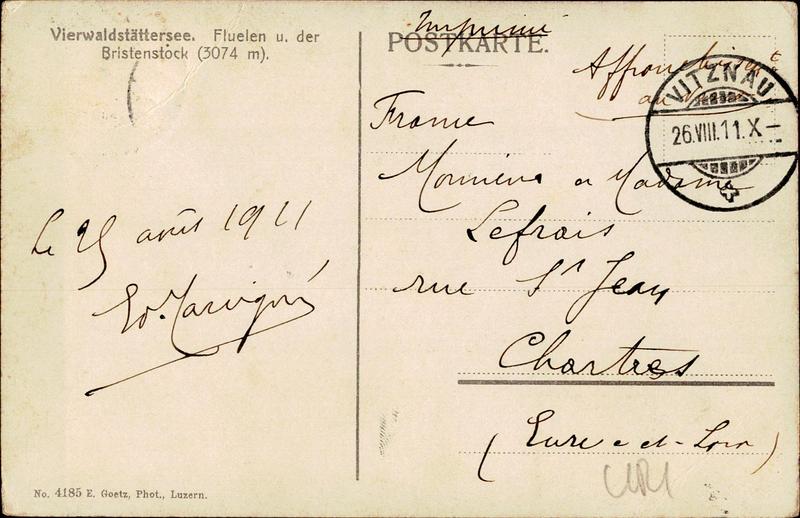 Vierwaldstättersee. Fluelen u. der
Bristenstock (3074 m).
Le 25 août 1911
No. 4185 E. Goetz, Phot., Luzern.
Imprimé
POSTKARTE.
au
VITZNAU
26.VIII.11.X
France
Monsieur et Madame
Lefrais
rue St Jean
Chartres
(Eure-et-Loir)
URI